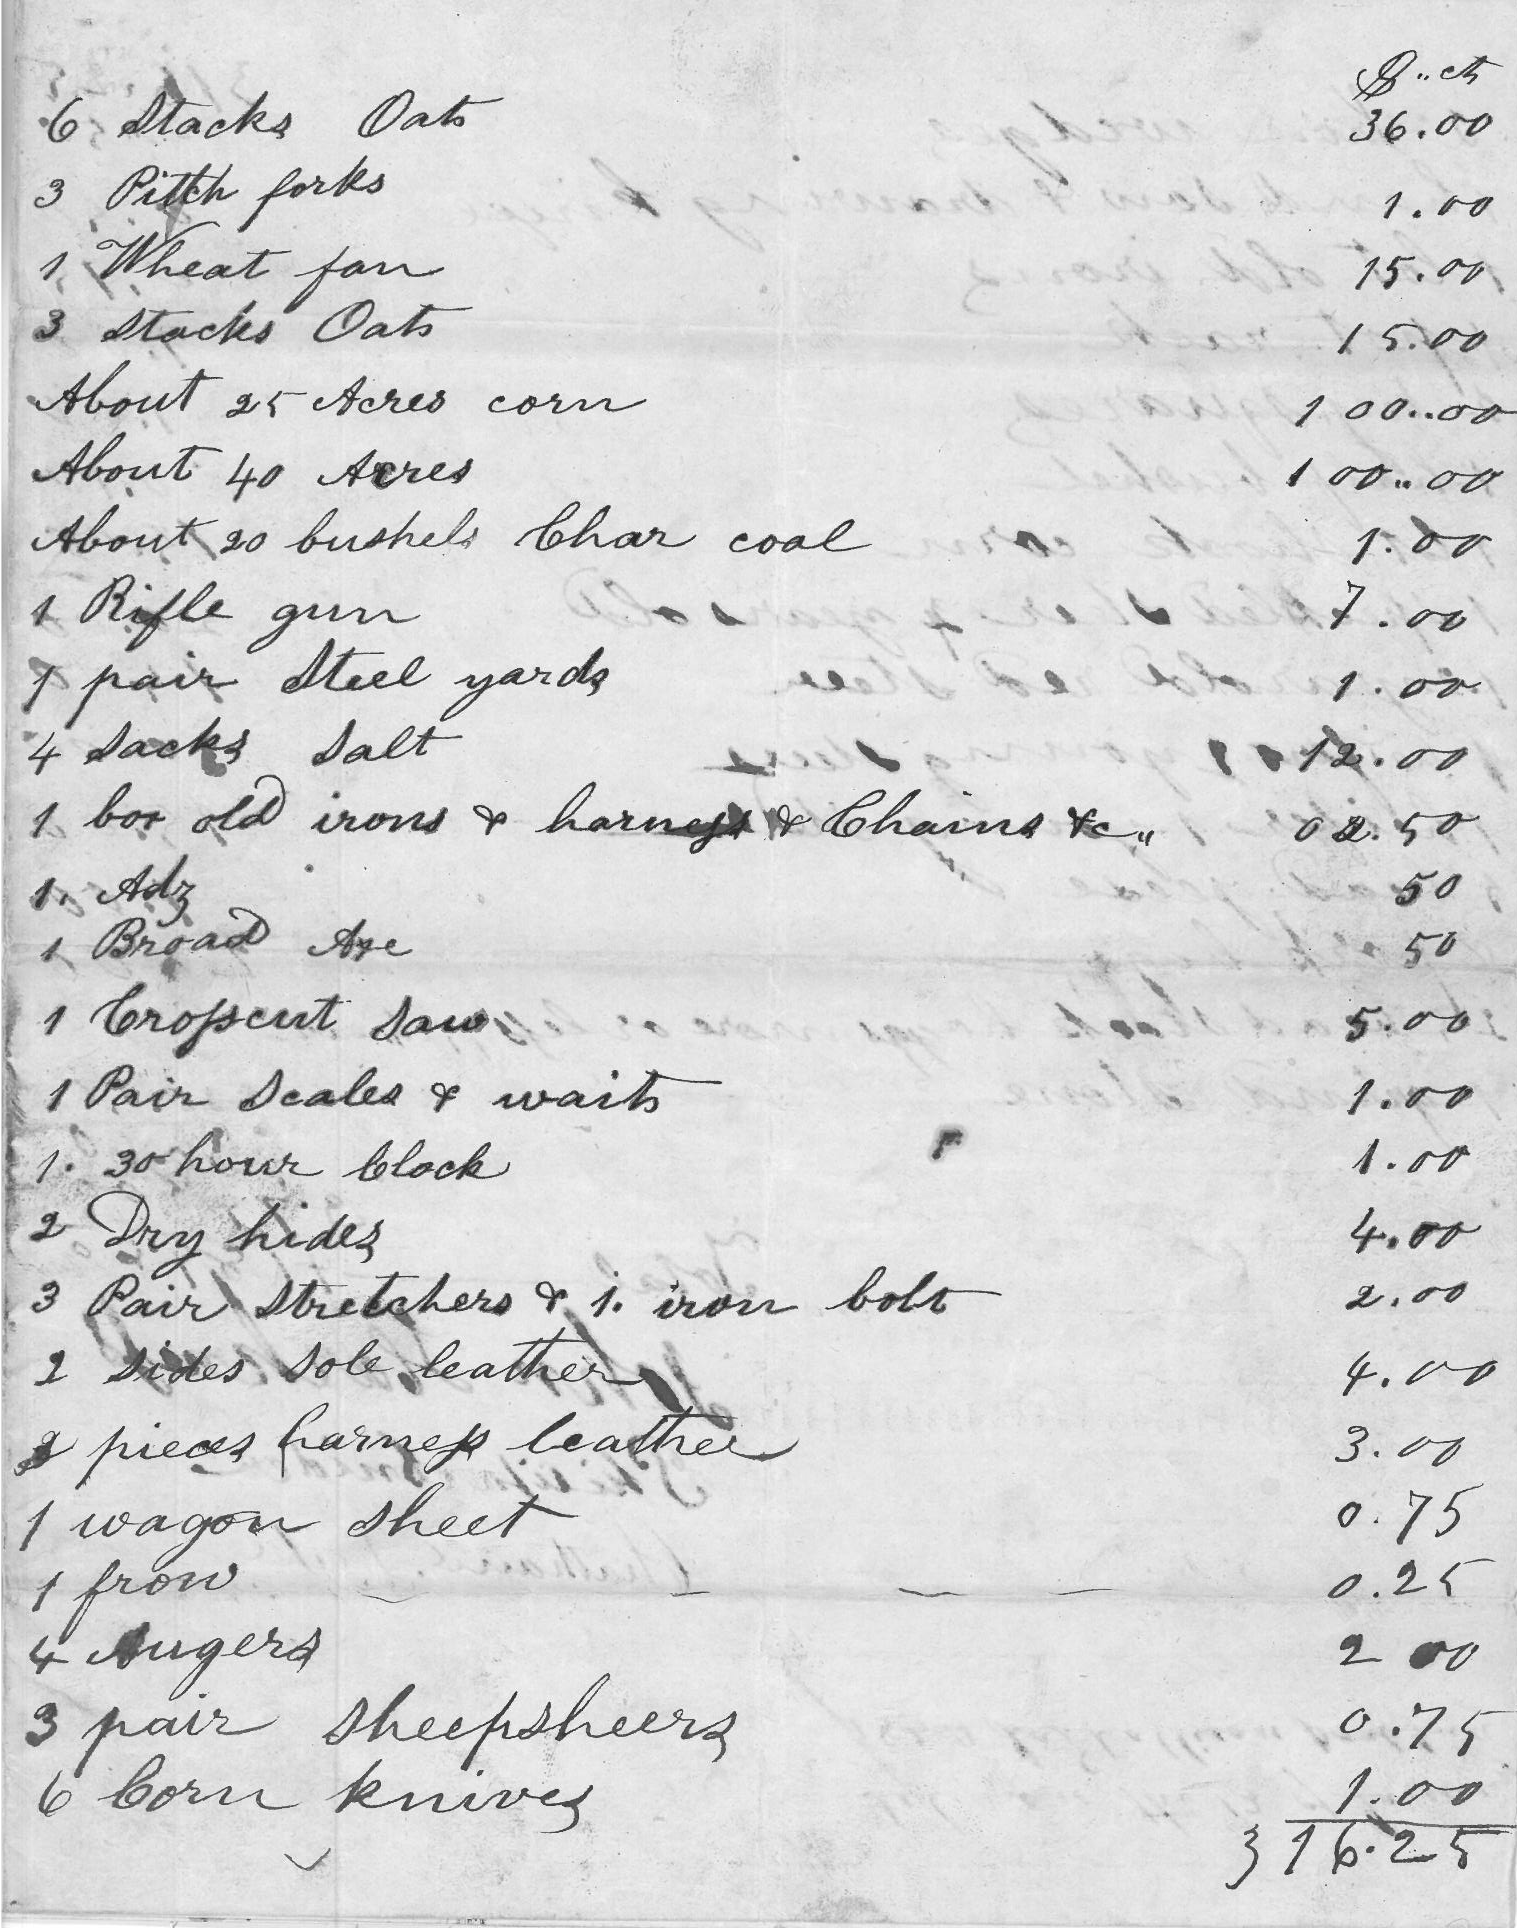 $ .. cts
6 Stacks Oats 36.00
3 Pitch forks 1.00
1 Wheat fan 15.00
3 Stacks Oats 15.00
About 25 Acres corn 100..00
About 40 Acres 100..00
About 20 bushels Char coal 1.00
1 Rifle gun 7.00
1 pair Steel yards 1.00
4 Sacks Salt 12.00
1 box old irons & harness & Chains &c.. 02.50
1. Adz 50
1 Broad Axe 50
1 Crosscut Saw 5.00
1 Pair Scales & waits 1.00
1. 30 hour Clock 1.00
2 Dry hides 4.00
3 Pair Stretchers & 1. iron bolt 2.00
2 Sides Sole leather 4.00
2 pieces harness leather 3.00
1 wagon Sheet 0.75
1 frow 0.25
4 Augers 2 00
3 pair Sheepsheers 0.75
6 Corn Knives 1.00
316.25